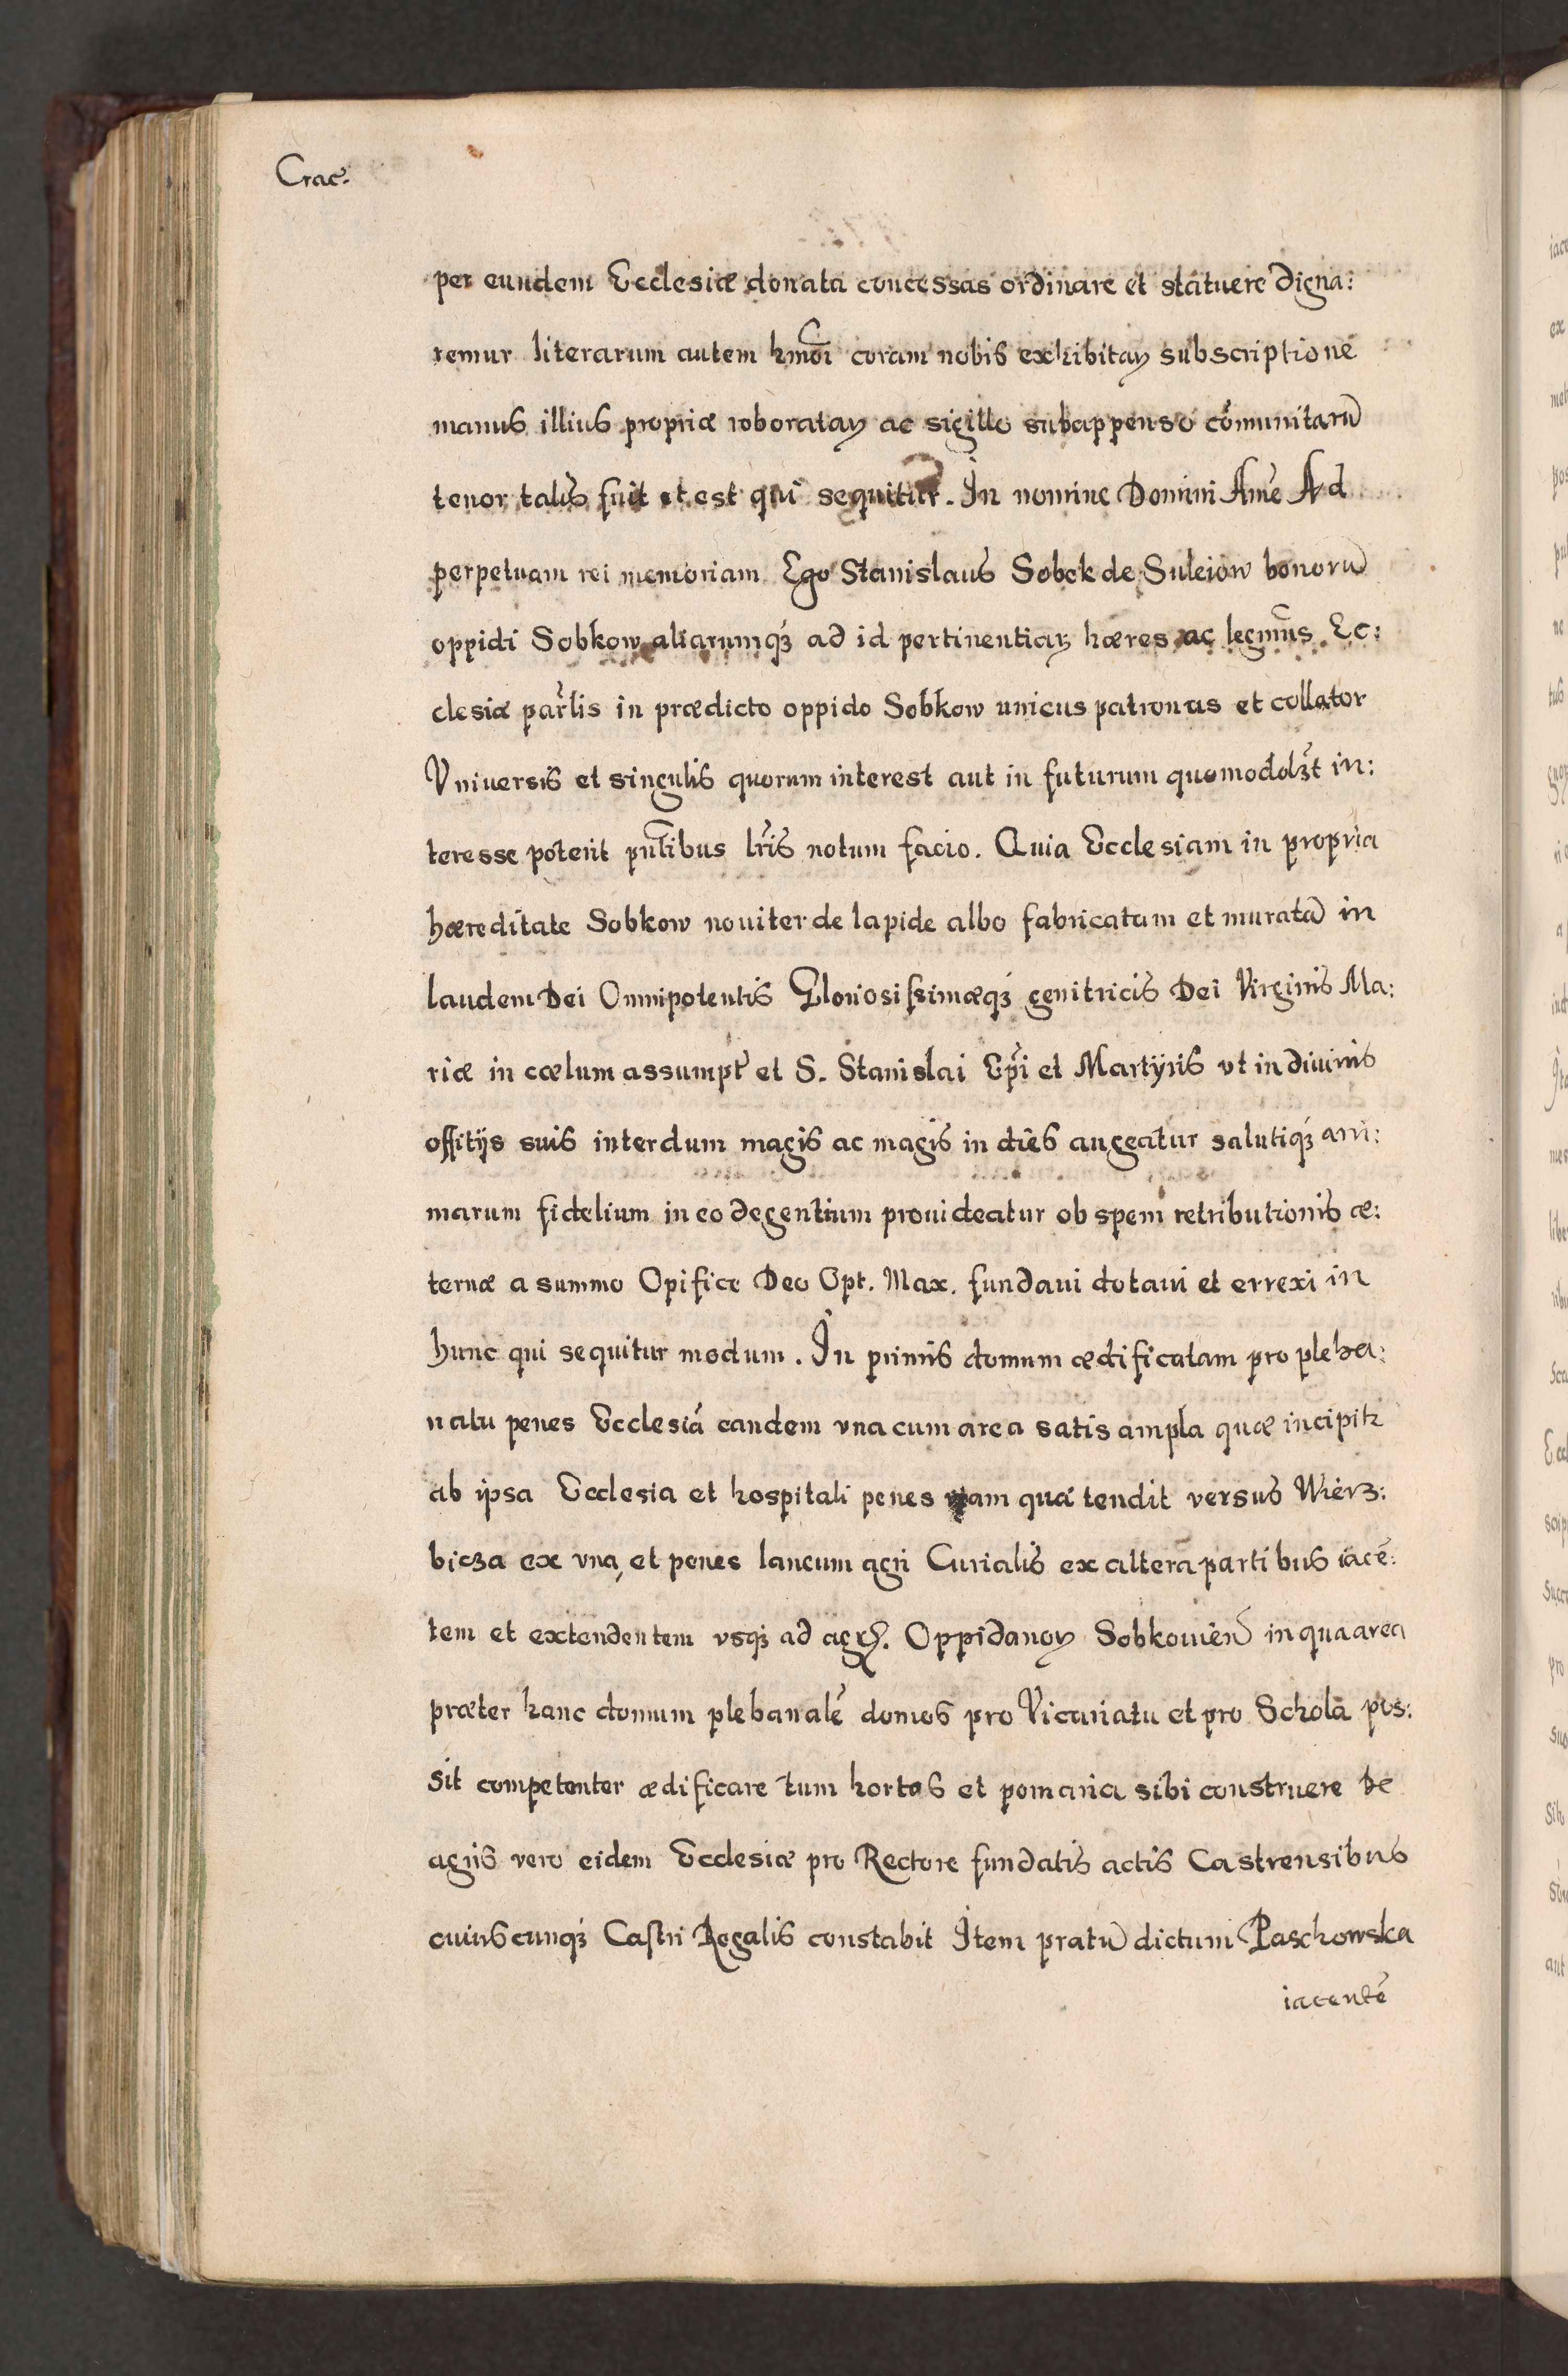 Crac.
per eundem Ecclesiæ donata concessas ordinare et statuere digna:
remur literarum autem hmõi coram nobis exhibitaꝝ subscriptione
manus illius propriæ roborataꝝ ac sigillo subappenso cõmunitarũ
tenor talis fuit et est qui sequitur. In nomine Domini Amẽ Ad
perpetuam rei memoriam Ego Stanislaus Sobek de Suleiow bonorũ
oppidi Sobkow aliarumqꝫ ad id pertinentiaꝝ hæres ac legmũs Ec:
clesiæ par̃lis in prædicto oppido Sobkow unicus patronus et collator
Vniversis et singulis quorum interest aut in futurum quomodolꝫt in:
teresse poterit pñtibus lr̃is notum facio. Quia Ecclesiam in propria
hæreditate Sobkow noviter de lapide albo fabricatam et muratã in
laudem Dei Omnipotentis Gloriosissimæqꝫ genitricis Dei Virginis Ma:
riæ in cœlum assumpt̃ et S. Stanislai Ep̃i et Martyris vt in diuinis
offitijs suis interdum magis ac magis in dies augeatur salutiqꝫ ani:
marum fidelium in eo degentium prouideatur ob spem retributionis æ:
ternæ a summo Opifice Deo Opt. Max. fundaui dotaui et errexi in
hunc qui sequitur modum. In primis domum ædificatam pro pleba:
natu penes Ecclesiã eandem vna cum area satis ampla quæ incipit
ab ipsa Ecclesia et hospitali penes viam quæ tendit versus Wierz:
bicza ex vna, et penes laneum agri Curialis ex altera partibus iacẽ:
tem et extendentem vsqꝫ ad agr̃. Oppidanoꝝ Sobkouieñ in qua area
præter hanc domum plebanalẽ domos pro Vicariatu et pro Schola pos:
sit competenter ædificare tum hortos et pomaria sibi construere De
agris vero eidem Ecclesiæ pro Rectore fundatis actis Castrensibus
cuiuscunqꝫ Castri Regalis constabit Item pratũ dictum Paschowska
iacentẽ